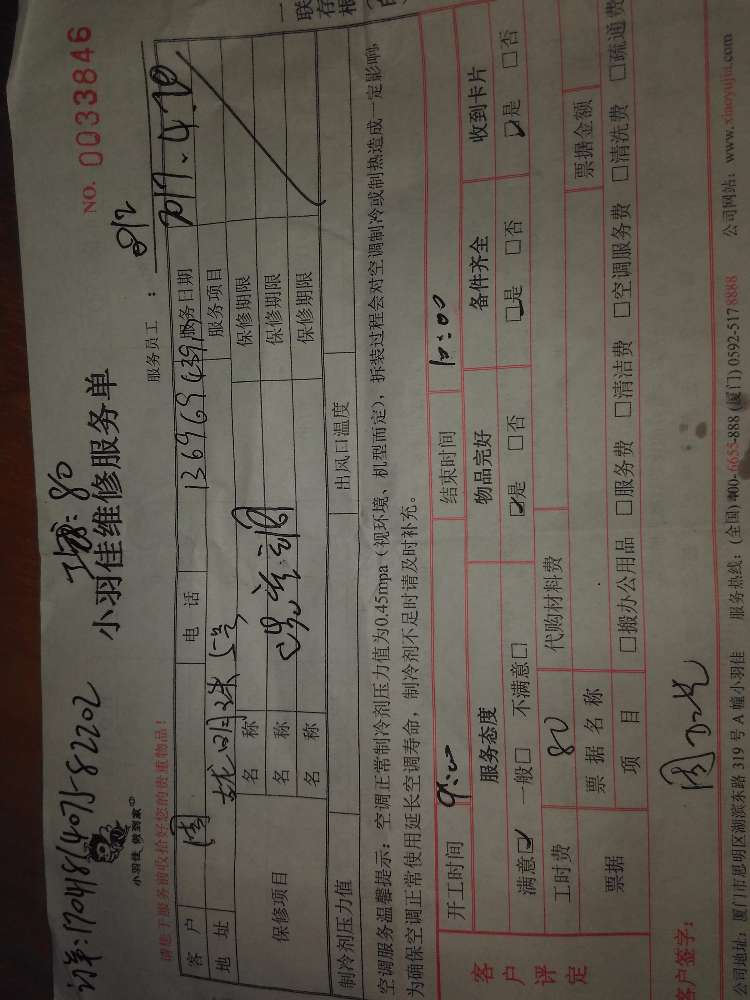 一联
存根
NO. 0033846
订单:1704181407582202
工费:80
小羽佳 做到家
小羽佳维修服务单
请您于服务前收拾好您的贵重物品!
服务员工:
客户 周 电话 服务日期 2017.4.20
地址 服务项目
保修项目 名称 保修期限
名称 保修期限
名称 保修期限
制冷剂压力值 出风口温度
空调服务温馨提示:空调正常制冷剂压力值为0.45mpa(视环境、机型而定),拆装过程会对空调制冷或制热造成一定影响,
为确保空调正常使用延长空调寿命,制冷剂不足时请及时补充。
客户评定
开工时间 9:00 结束时间 10:00
服务态度 物品完好 备件齐全 收到卡片
满意☑ 一般□ 不满意□ ☑是 □否 ☑是 □否 ☑是 □否
工时费 80 代购材料费
票据 票据名称 票据金额
项目 □搬办公用品 □服务费 □清洁费 □空调服务费 □清洗费 □疏通费
客户签字:
公司地址:厦门市思明区湖滨东路319号A幢小羽佳 服务热线:(全国)400-6655-888 (厦门)0592-5178888 公司网站:www.xiaoyujia.com